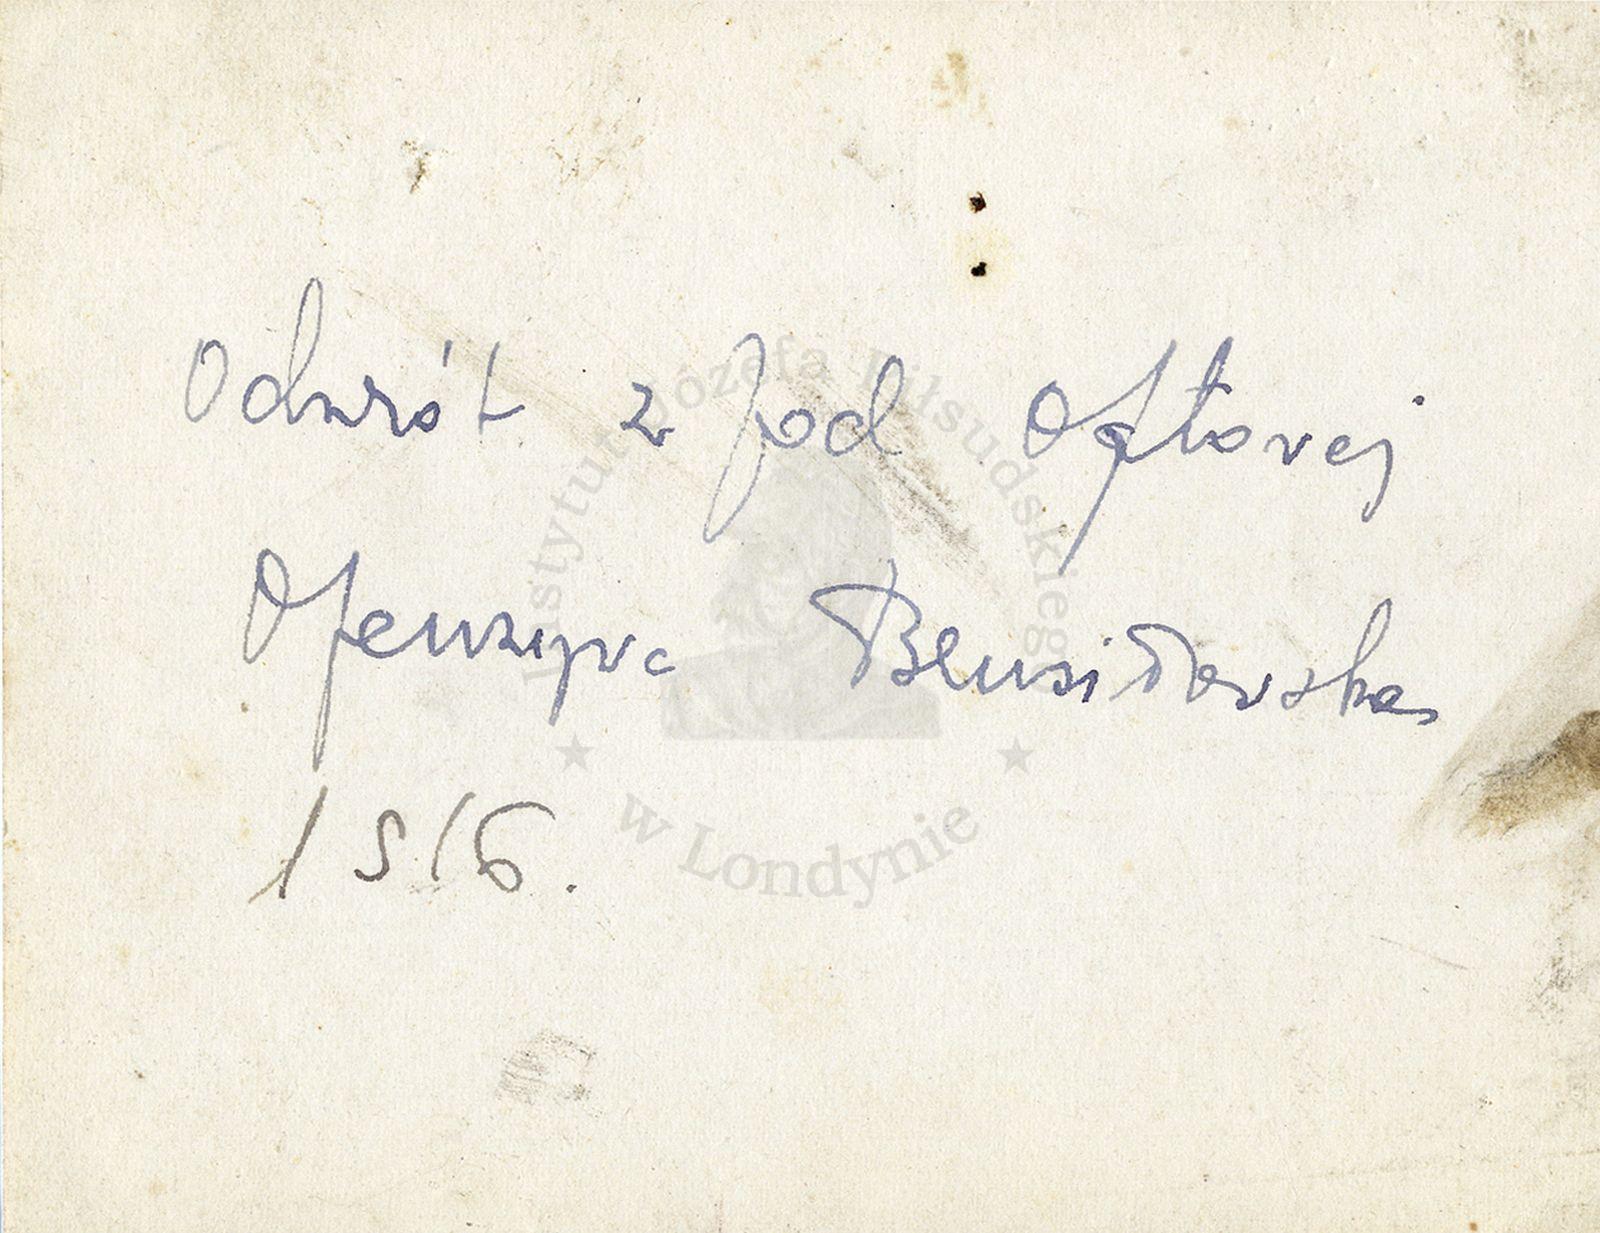 Odwrót z pod Optovej
Ofenzyva Brusiłovska
1916.
Instytut Józefa Piłsudskiego
w Londynie